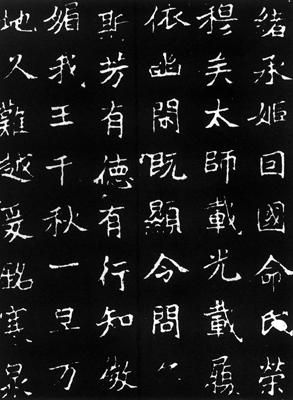 緒承姬因國命氏榮
穆美太師載光載
依幽閑既顯令問久
斯芳有德有行知微
媚我王千秋一旦万
地久難越爰銘寒泉